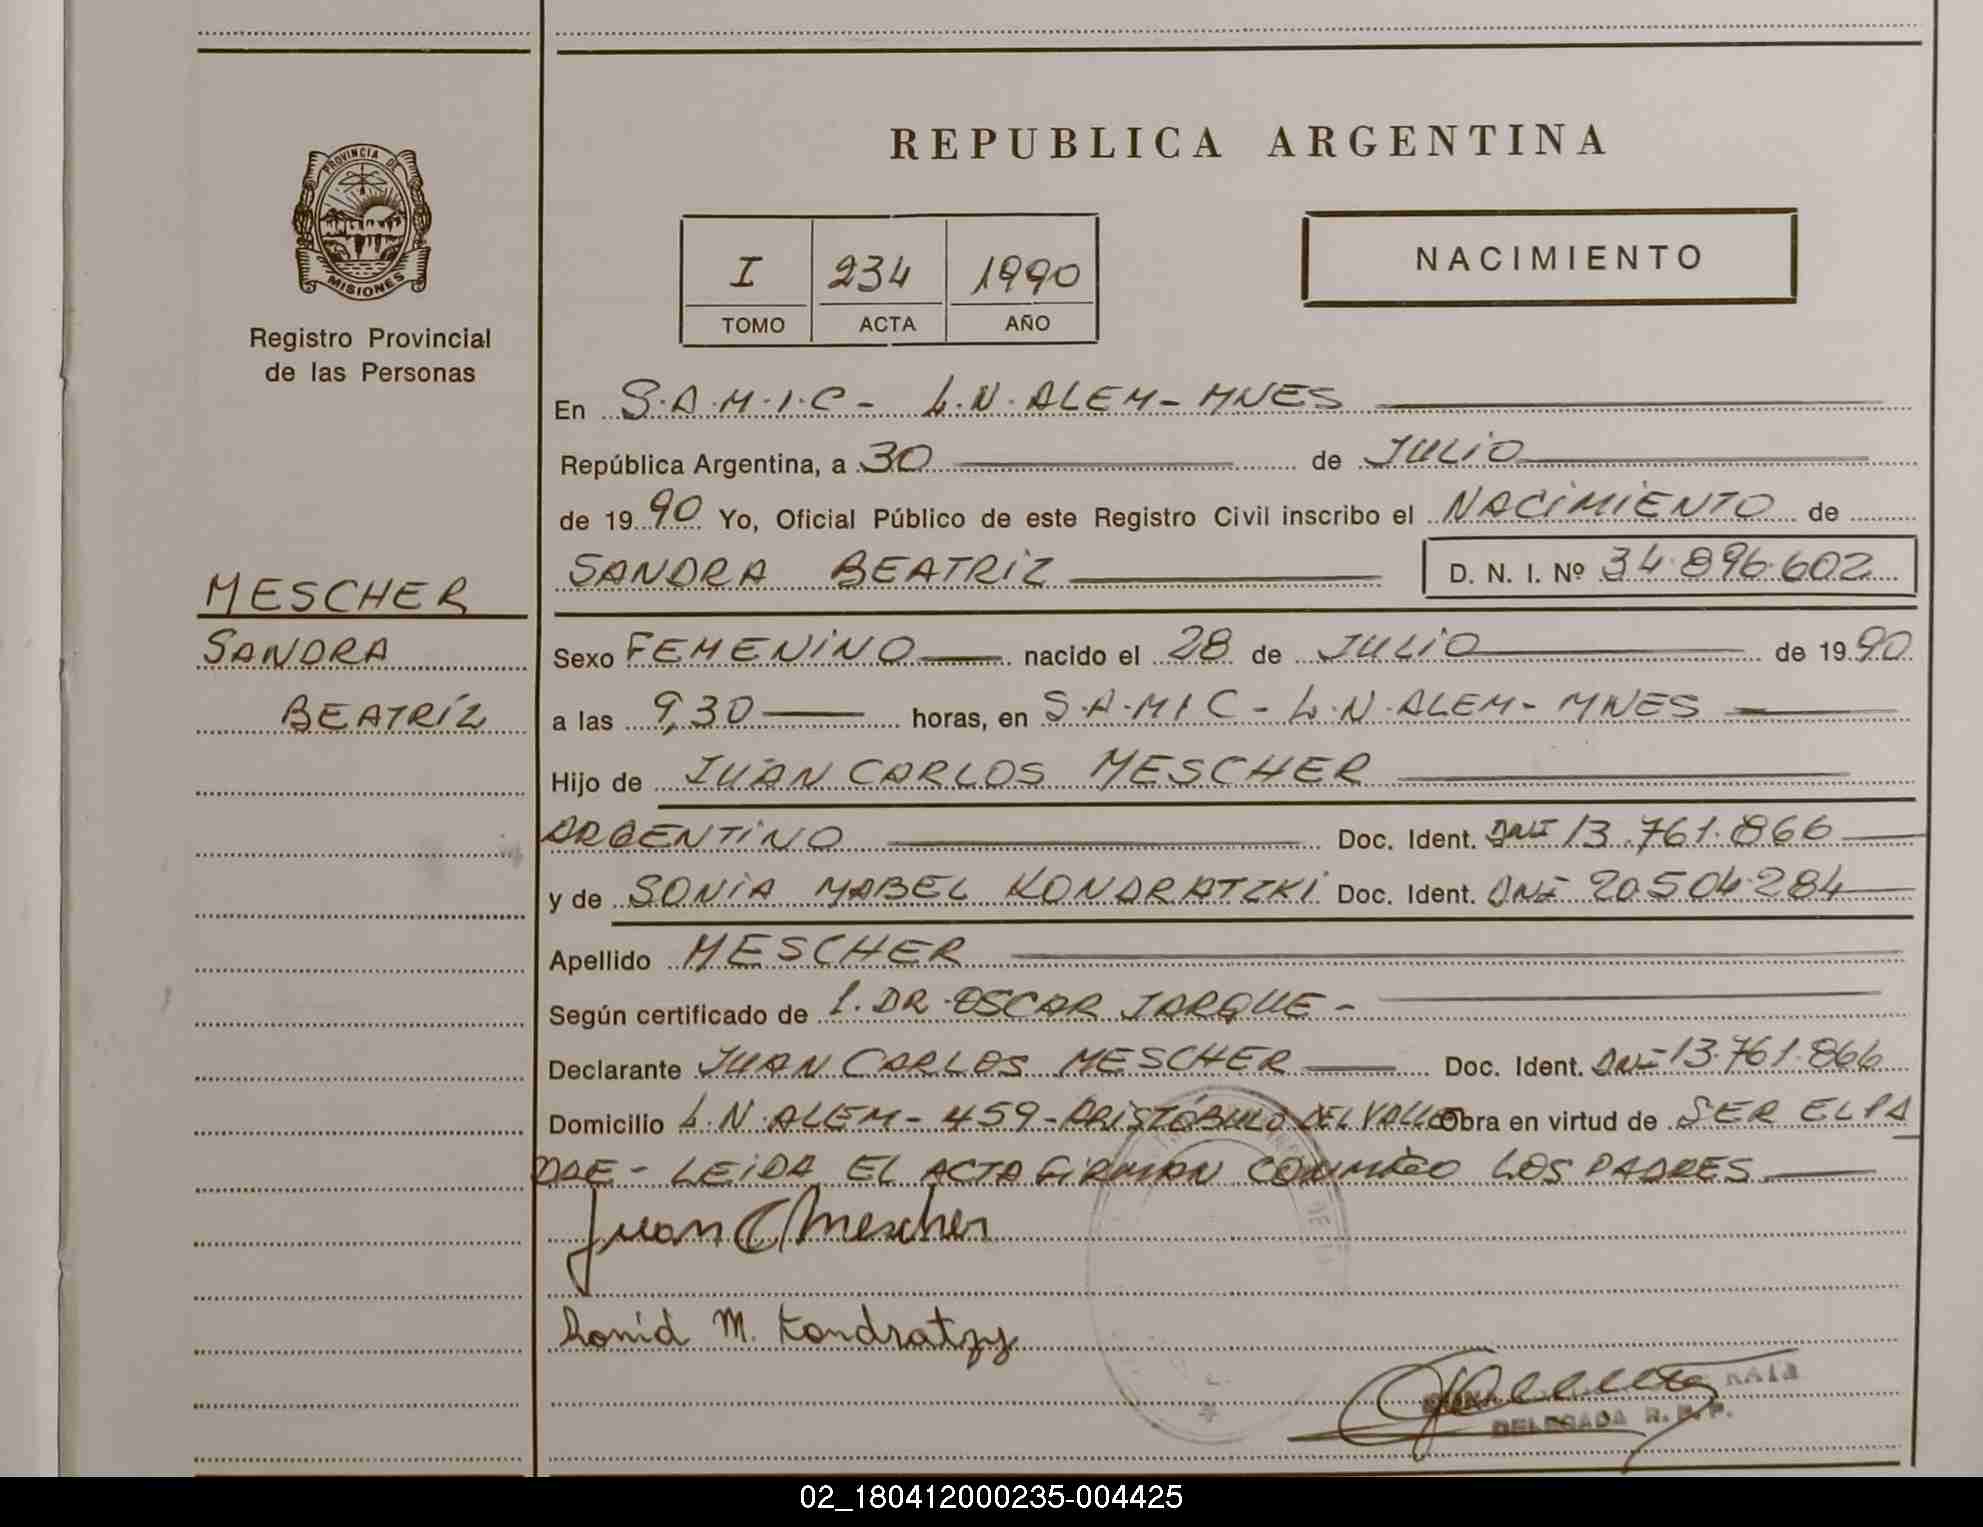 PROVINCIA DE
MISIONES
Registro Provincial
de las Personas
MESCHER
SANDRA
BEATRÍZ
REPUBLICA ARGENTINA
I 234 1990
TOMO ACTA AÑO
NACIMIENTO
En S.A.M.I.C - L.N. ALEM - MNES
República Argentina, a 30 de JULIO
de 1990 Yo, Oficial Público de este Registro Civil inscribo el NACIMIENTO de
SANDRA BEATRIZ D. N. I. Nº 34.896.602
Sexo FEMENINO nacido el 28 de JULIO de 1990
a las 9,30 horas, en S.A.M.I.C - L.N. ALEM - MNES
Hijo de JUAN CARLOS MESCHER
ARGENTINO Doc. Ident. DNI 13.761.866
y de SONIA MABEL KONDRATZKI Doc. Ident. DNI 20.504.284
Apellido MESCHER
Según certificado de 1. DR. OSCAR JARQUE -
Declarante JUAN CARLOS MESCHER Doc. Ident. DNI 13.761.866
Domicilio L.N. ALEM - 459 - ARISTÓBULO DEL VALLE Obra en virtud de SER EL PA
DRE - LEIDA EL ACTA FIRMAN CONMIGO LOS PADRES
Juan C Mescher
Sonia M. Kondratzky
DELEGADA R. P. P.
02_180412000235-004425